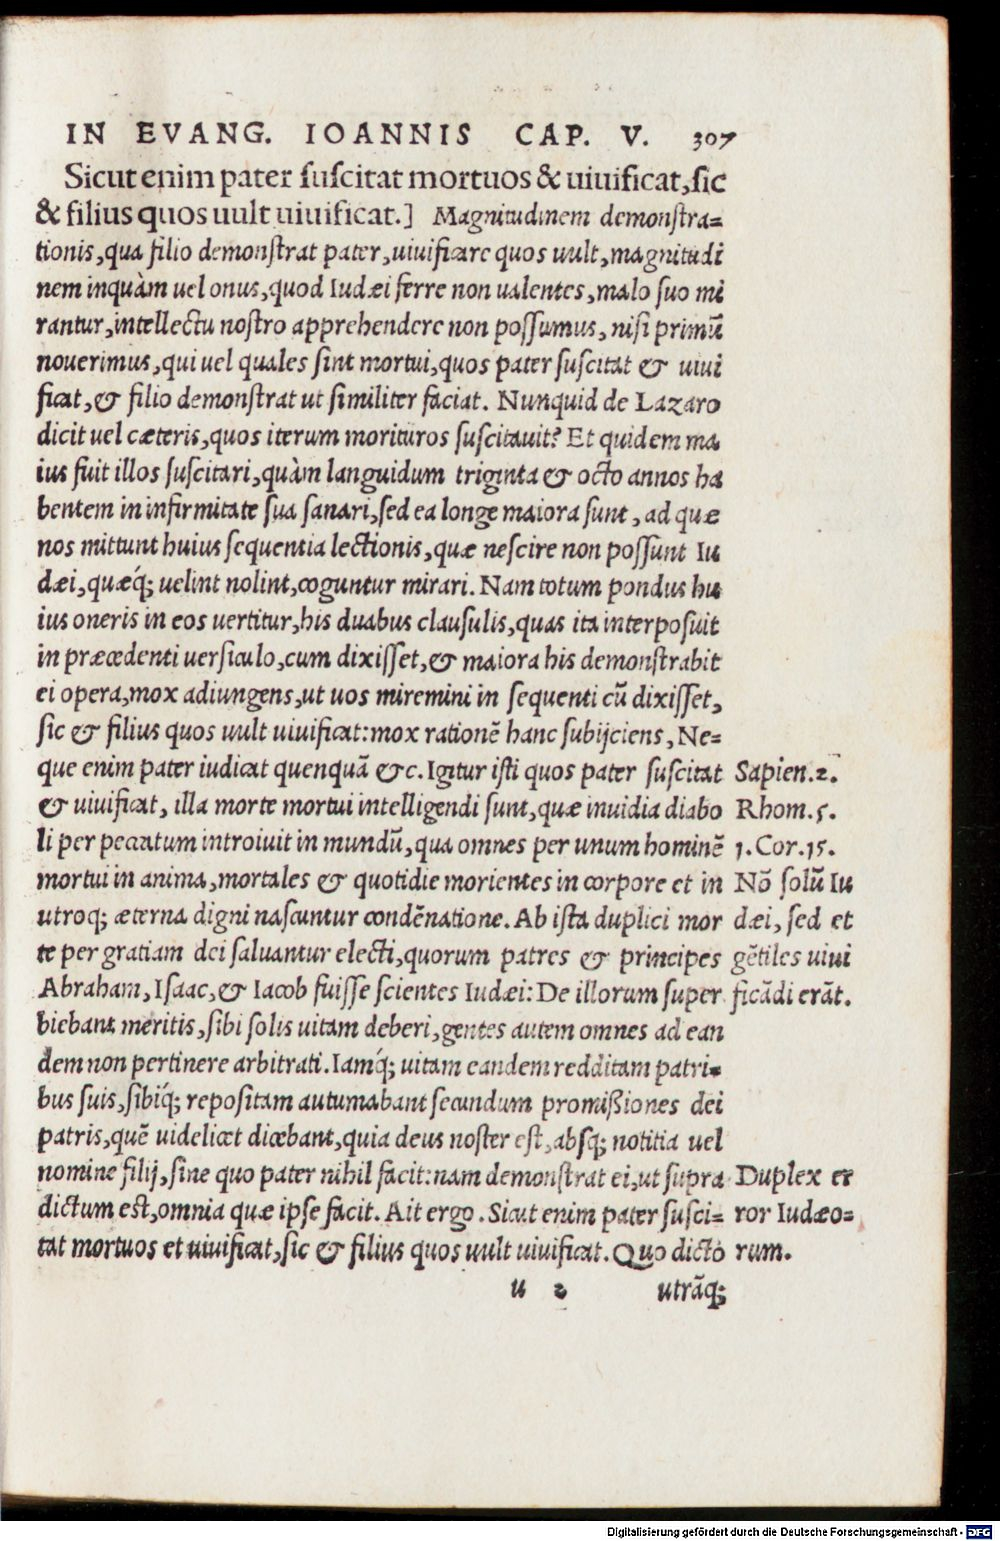 IN EVANG. IOANNIS CAP. V. 307
Sicut enim pater suscitat mortuos & uiuificat, sic
& filius quos uult uiuificat.] Magnitudinem demonstra=
tionis, qua filio demonstrat pater, uiuificare quos uult, magnitudi
nem inquàm uel onus, quod Iudæi ferre non ualentes, malo suo mi
rantur, intellectu nostro apprehendere non possumus, nisi primū
nouerimus, qui uel quales sint mortui, quos pater suscitat & uiui
ficat, & filio demonstrat ut similiter faciat. Nunquid de Lazaro
dicit uel cæteris, quos iterum morituros suscitauit? Et quidem ma
ius fuit illos suscitari, quàm languidum triginta & octo annos ha
bentem in infirmitate sua sanari, sed ea longe maiora sunt, ad quæ
nos mittunt huius sequentia lectionis, quæ nescire non possunt Iu
dæi, quæq́; uelint nolint, coguntur mirari. Nam totum pondus hu
ius oneris in eos uertitur, his duabus clausulis, quas ita interposuit
in præcedenti uersiculo, cum dixisset, & maiora his demonstrabit
ei opera, mox adiungens, ut uos miremini in sequenti cū dixisset,
sic & filius quos uult uiuificat: mox rationē hanc subijciens, Ne=
que enim pater iudicat quenquā &c. Igitur isti quos pater suscitat
& uiuificat, illa morte mortui intelligendi sunt, quæ inuidia diabo
li per peccatum introiuit in mundū, qua omnes per unum hominē
mortui in anima, mortales & quotidie morientes in corpore et in
utroq; æterna digni nascuntur condēnatione. Ab ista duplici mor
te per gratiam dei saluantur electi, quorum patres & principes
Abraham, Isaac, & Iacob fuisse scientes Iudæi: De illorum super
biebant meritis, sibi solis uitam deberi, gentes autem omnes ad ean
dem non pertinere arbitrati. Iamq́; uitam eandem redditam patri=
bus suis, sibiq́; repositam autumabant secundum promißiones dei
patris, quē uidelicet dicebant, quia deus noster est, absq; notitia uel
nomine filij, sine quo pater nihil facit: nam demonstrat ei, ut supra
dictum est, omnia quæ ipse facit. Ait ergo. Sicut enim pater susci=
tat mortuos et uiuificat, sic & filius quos uult uiuificat. Quo dicto
u 2 utrāq;
Sapien. 2.
Rhom. 5.
1. Cor. 15.
Nō solū Iu
dæi, sed et
gētiles uiui
ficādi erāt.
Duplex er
ror Iudæo=
rum.
Digitalisierung gefördert durch die Deutsche Forschungsgemeinschaft - DFG